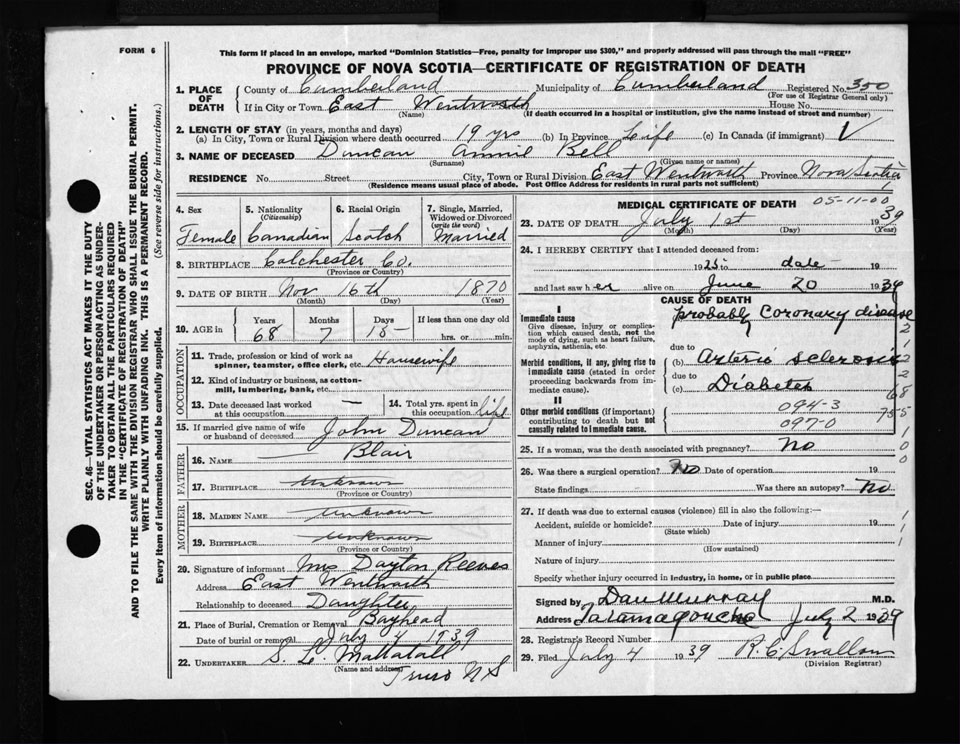 FORM 6
This form if placed in an envelope, marked "Dominion Statistics—Free, penalty for improper use $300," and properly addressed will pass through the mail "FREE"
PROVINCE OF NOVA SCOTIA—CERTIFICATE OF REGISTRATION OF DEATH
SEC. 46—VITAL STATISTICS ACT MAKES IT THE DUTY
OF THE UNDERTAKER OR PERSON ACTING AS UNDER-
TAKER TO OBTAIN ALL THE PARTICULARS REQUIRED
IN THE "CERTIFICATE OF REGISTRATION OF DEATH"
AND TO FILE THE SAME WITH THE DIVISION REGISTRAR WHO SHALL ISSUE THE BURIAL PERMIT.
WRITE PLAINLY WITH UNFADING INK. THIS IS A PERMANENT RECORD.
Every item of information should be carefully supplied. (See reverse side for instructions.)
1. PLACE OF DEATH
County of Cumberland Municipality of Cumberland Registered No. 350
(For use of Registrar General only)
If in City or Town East Wentworth House No.
(Name) (If death occurred in a hospital or institution, give the name instead of street and number)
2. LENGTH OF STAY (in years, months and days)
(a) In City, Town or Rural Division where death occurred 19 yrs (b) In Province Life (c) In Canada (if immigrant)
3. NAME OF DECEASED Duncan Annie Bell
(Surname) (Given name or names)
RESIDENCE No. Street City, Town or Rural Division East Wentworth Province Nova Scotia
(Residence means usual place of abode. Post Office Address for residents in rural parts not sufficient)
4. Sex Female
5. Nationality (Citizenship) Canadian
6. Racial Origin Scotch
7. Single, Married, Widowed or Divorced (write the word) Married
8. BIRTHPLACE Colchester Co.
(Province or Country)
9. DATE OF BIRTH Nov 16th 1870
(Month) (Day) (Year)
10. AGE in Years Months Days If less than one day old
68 7 15 hrs. or min.
OCCUPATION
11. Trade, profession or kind of work as spinner, teamster, office clerk, etc. Housewife
12. Kind of industry or business, as cotton-mill, lumbering, bank, etc.
13. Date deceased last worked at this occupation —
14. Total yrs. spent in this occupation life
15. If married give name of wife or husband of deceased John Duncan
FATHER
16. NAME — Blair
17. BIRTHPLACE Unknown
(Province or Country)
MOTHER
18. MAIDEN NAME Unknown
19. BIRTHPLACE Unknown
(Province or Country)
20. Signature of informant Mrs Dayton Reeves
Address East Wentworth
Relationship to deceased Daughter
21. Place of Burial, Cremation or Removal Bayhead
Date of burial or removal July 4 1939
22. UNDERTAKER S. L. Mattatall
(Name and address)
Truro N S
MEDICAL CERTIFICATE OF DEATH
05-11-00
23. DATE OF DEATH July 1st 1939
(Month) (Day) (Year)
24. I HEREBY CERTIFY that I attended deceased from:
1925 to date 19
and last saw her alive on June 20 1939
CAUSE OF DEATH
I
Immediate cause
Give disease, injury or complication which caused death, not the mode of dying, such as heart failure, asphyxia, asthenia, etc.
probably Coronary disease
due to
Morbid conditions, if any, giving rise to immediate cause (stated in order proceeding backwards from immediate cause).
(b) Arterio sclerosis
due to
(c) Diabetes
II
Other morbid conditions (if important) contributing to death but not causally related to immediate cause.
094-3
097-0
25. If a woman, was the death associated with pregnancy? No
26. Was there a surgical operation? No Date of operation 19
State findings Was there an autopsy? No
27. If death was due to external causes (violence) fill in also the following:—
Accident, suicide or homicide? Date of injury 19
(State which)
Manner of injury
(How sustained)
Nature of injury
Specify whether injury occurred in industry, in home, or in public place
Signed by Dan Murray M.D.
Address Tatamagouche July 2 1939
28. Registrar's Record Number
29. Filed July 4 1939 R. C. Swallow
(Division Registrar)